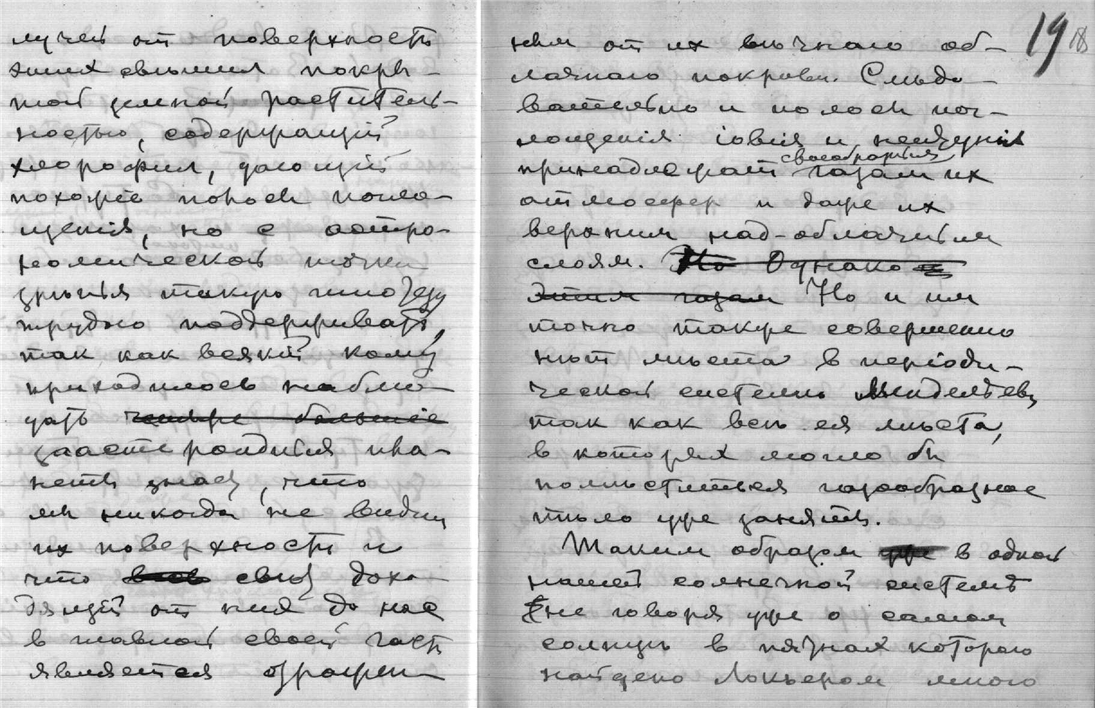 лучей от поверхность
этих свѣтил покры-
той земной раститель-
ностью, содержащій
хлорофил, дающій
похожія полосы погло-
щенія, но с астро-
номической точки
зрѣнія такую гипотезу
трудно поддерживать,
так как всякій кому
приходилось наблю-
дать четыре большія
части рождія пла-
неты знает, что
мы никогда не видим
их поверхности и
что весь свѣт дохо-
дящій от них до нас
в главной своей части
является отражен-
ным от их вѣчнаго об-
лачнаго покрова. Слѣдо-
вательно и полосы пог-
лощенія іовія и нептунія
принадлежат своеобразным газам их
атмосфер и даже их
верхним над-облачным
слоям. Но Однако
этим газам Но и им
точно также совершенно
нѣт мѣста в періоди-
ческой системѣ Менделѣева
так как всѣ ея мѣста,
в которых могло бы
помѣститься газообразное
тѣло уже заняты.
Таким образом уже в одной
нашей солнечной системѣ
(не говоря уже о самом
солнцѣ в пятнах котораго
найдено Локьером много
19
18